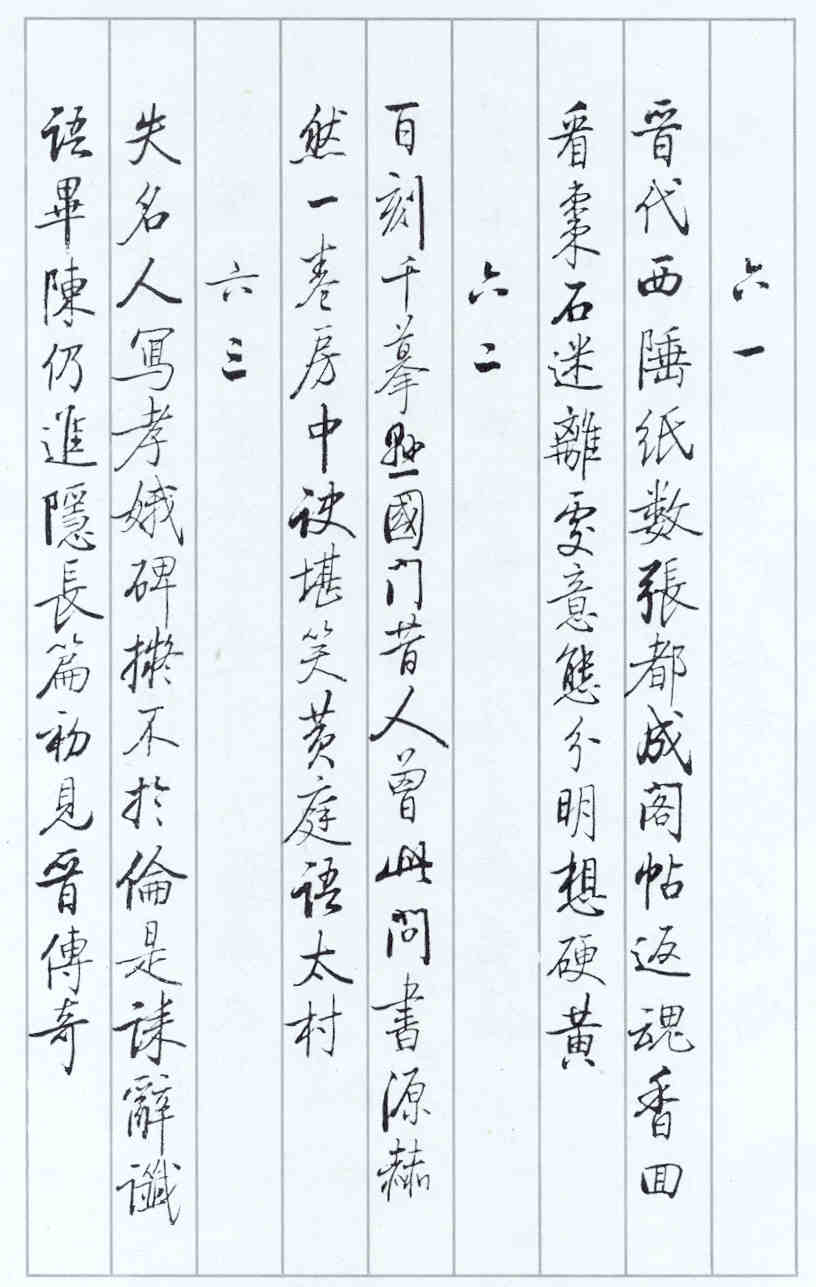 六一
晉代西陲纸数張都成閣帖返魂香回
看棗石迷離處意態分明想硬黃
六二
百刻千摹懸國門昔人曾此問書源赫
然一卷房中訣堪笑黄庭語太村
六三
失名人寫孝娥碑擬不於倫是誄辭讖
語畢陳仍進隱長篇初見晉傳奇